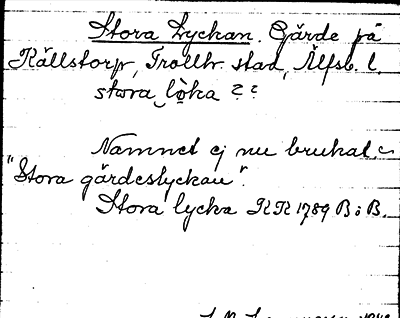 Stora Lyckan. Gärde på
Källstorp, Trollh. stad, Älfsb. l.
stora lo̤ka ??
Namnet ej nu brukat.
"Stora gärdeslyckan".
Stora lycka KR 1789 B : B.